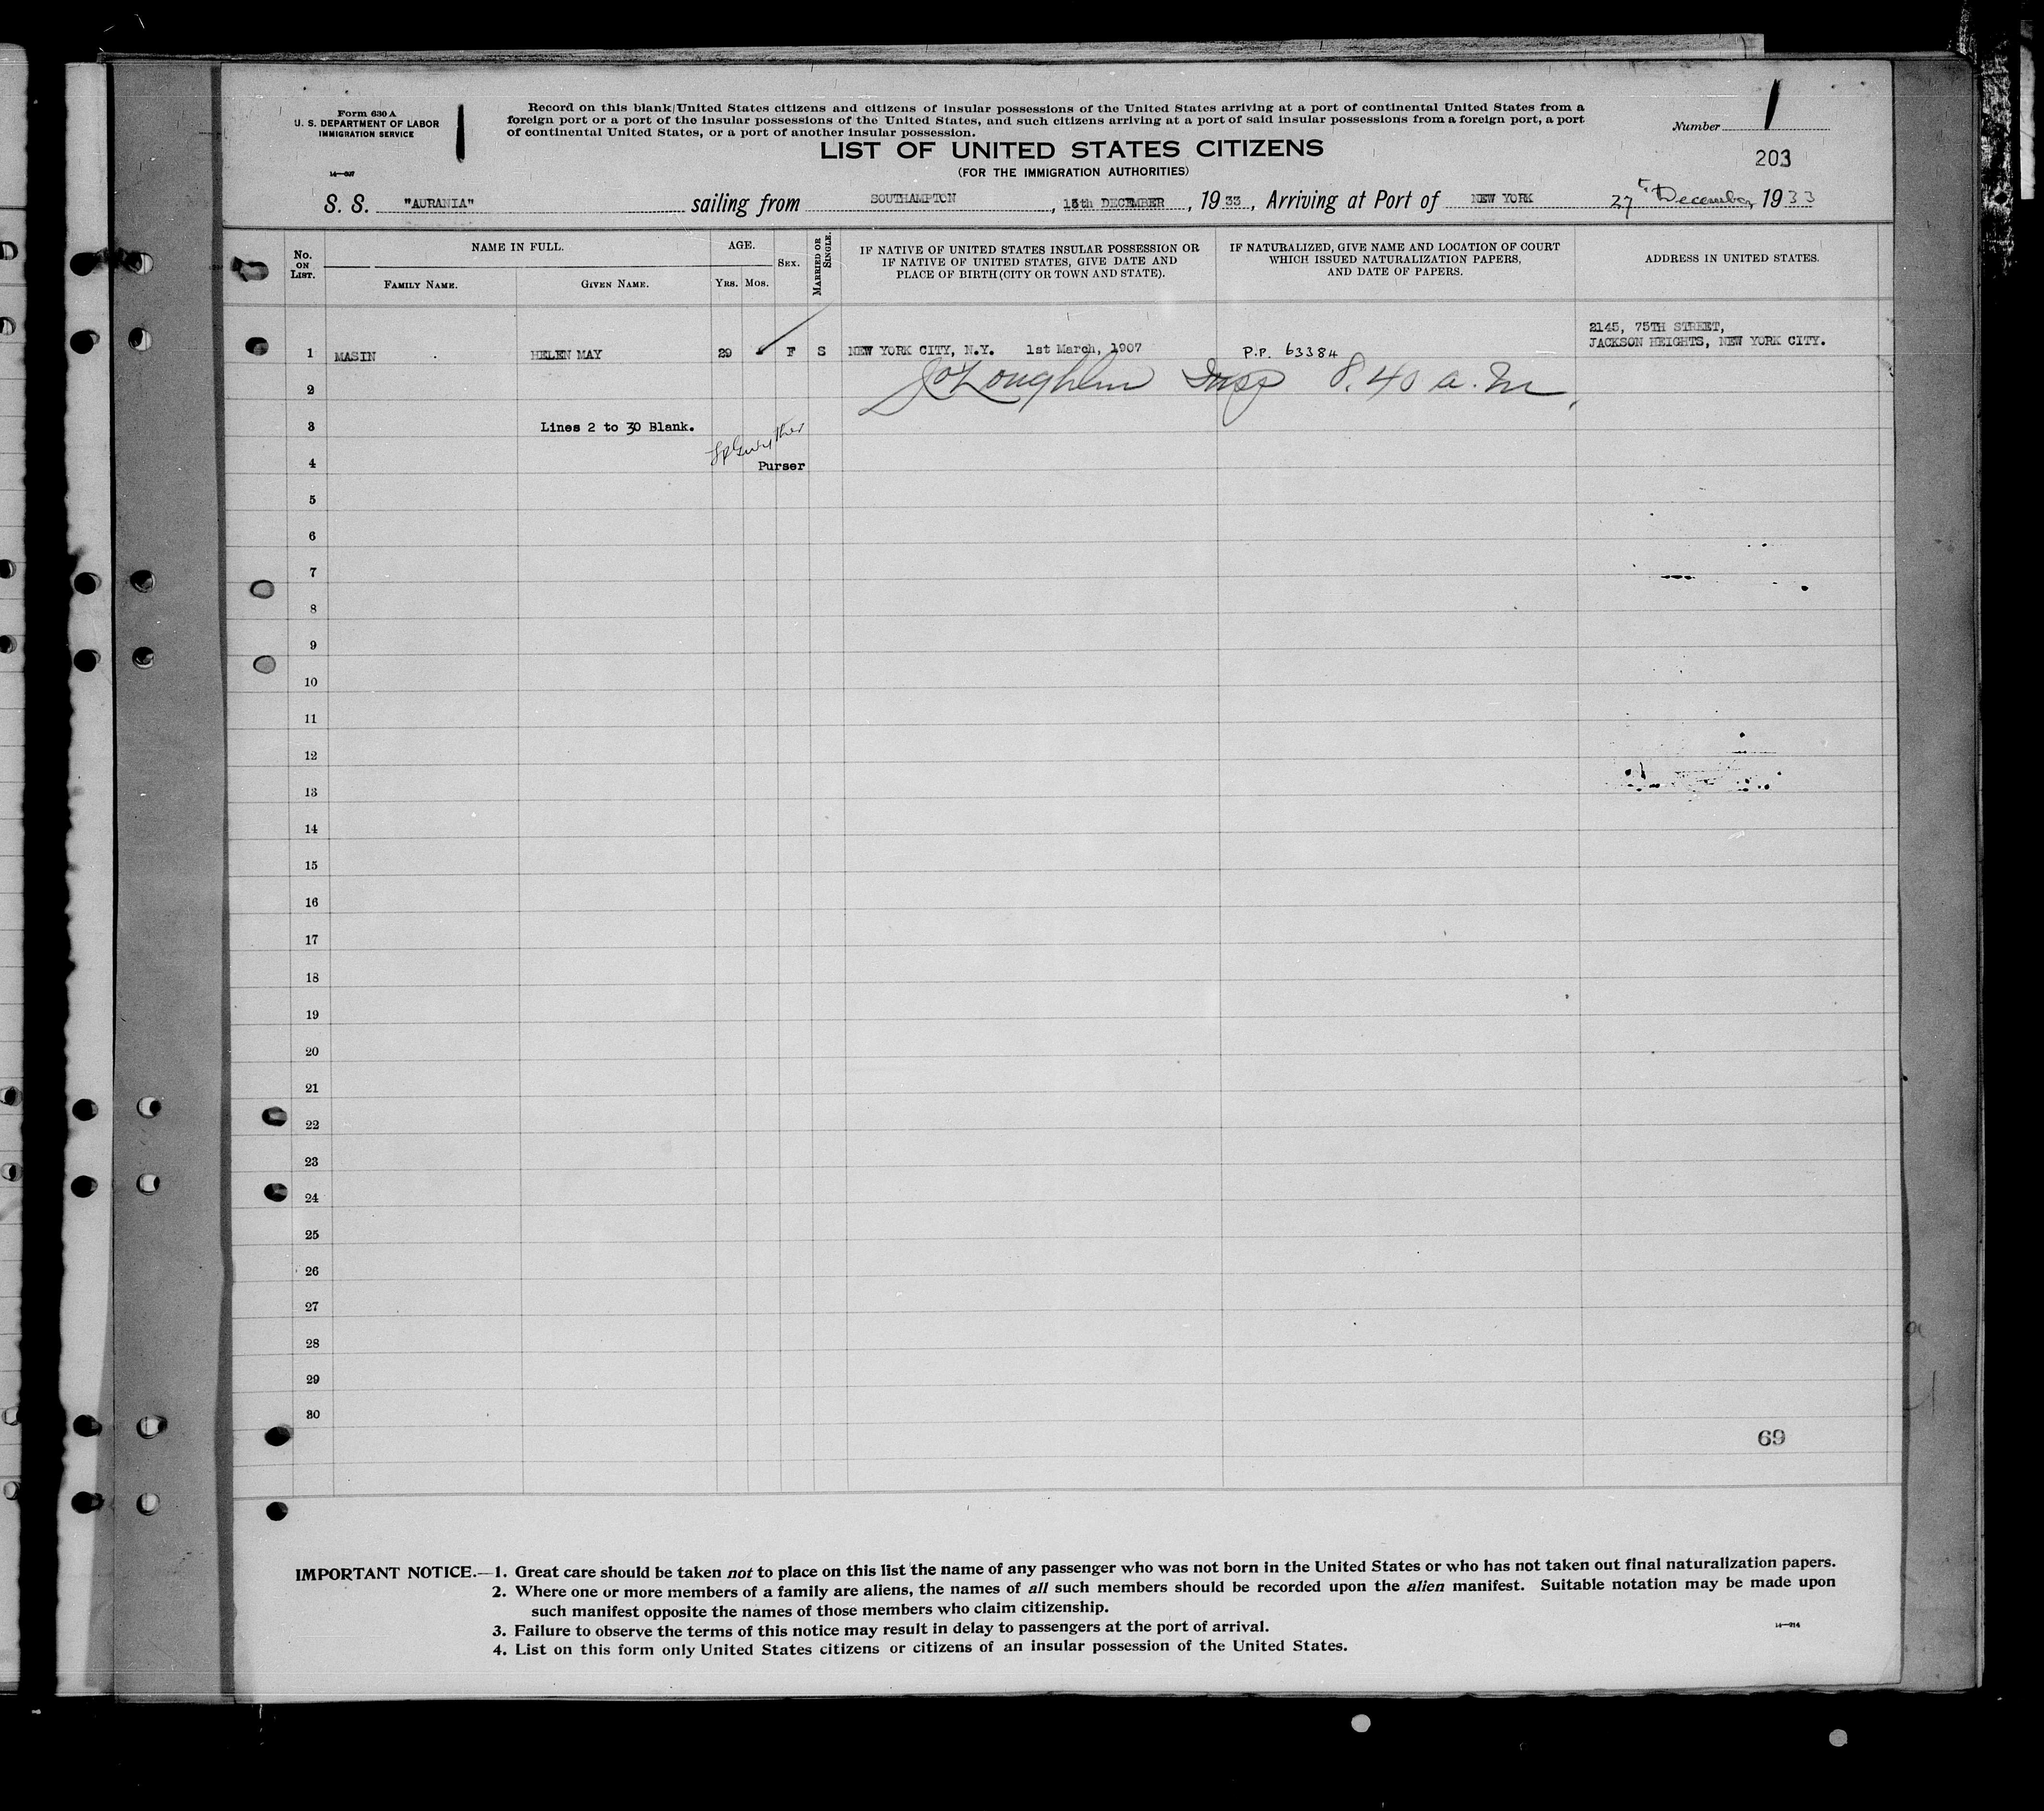 Form 630 A
U. S. DEPARTMENT OF LABOR
IMMIGRATION SERVICE
14—607
Record on this blank United States citizens and citizens of insular possessions of the United States arriving at a port of continental United States from a
foreign port or a port of the insular possessions of the United States, and such citizens arriving at a port of said insular possessions from a foreign port, a port
of continental United States, or a port of another insular possession.
Number 1
203
LIST OF UNITED STATES CITIZENS
(FOR THE IMMIGRATION AUTHORITIES)
S. S. "AURANIA" sailing from SOUTHAMPTON, 15th DECEMBER, 1933, Arriving at Port of NEW YORK 27th December 1933
No. ON LIST. NAME IN FULL. AGE. SEX. MARRIED OR SINGLE. IF NATIVE OF UNITED STATES INSULAR POSSESSION OR IF NATIVE OF UNITED STATES, GIVE DATE AND PLACE OF BIRTH (CITY OR TOWN AND STATE). IF NATURALIZED, GIVE NAME AND LOCATION OF COURT WHICH ISSUED NATURALIZATION PAPERS, AND DATE OF PAPERS. ADDRESS IN UNITED STATES.
FAMILY NAME. GIVEN NAME. YRS. MOS.
2145, 75TH STREET,
JACKSON HEIGHTS, NEW YORK CITY.
1 MASIN HELEN MAY 29 F S NEW YORK CITY, N.Y. 1st March, 1907 P.P. 63384
2 O'Loughlin Insp 8.40 a.m.
3 Lines 2 to 30 Blank.
4 Purser
5
6
7
8
9
10
11
12
13
14
15
16
17
18
19
20
21
22
23
24
25
26
27
28
29
30
69
IMPORTANT NOTICE.—1. Great care should be taken not to place on this list the name of any passenger who was not born in the United States or who has not taken out final naturalization papers.
2. Where one or more members of a family are aliens, the names of all such members should be recorded upon the alien manifest. Suitable notation may be made upon
such manifest opposite the names of those members who claim citizenship.
3. Failure to observe the terms of this notice may result in delay to passengers at the port of arrival.
4. List on this form only United States citizens or citizens of an insular possession of the United States.
14—214